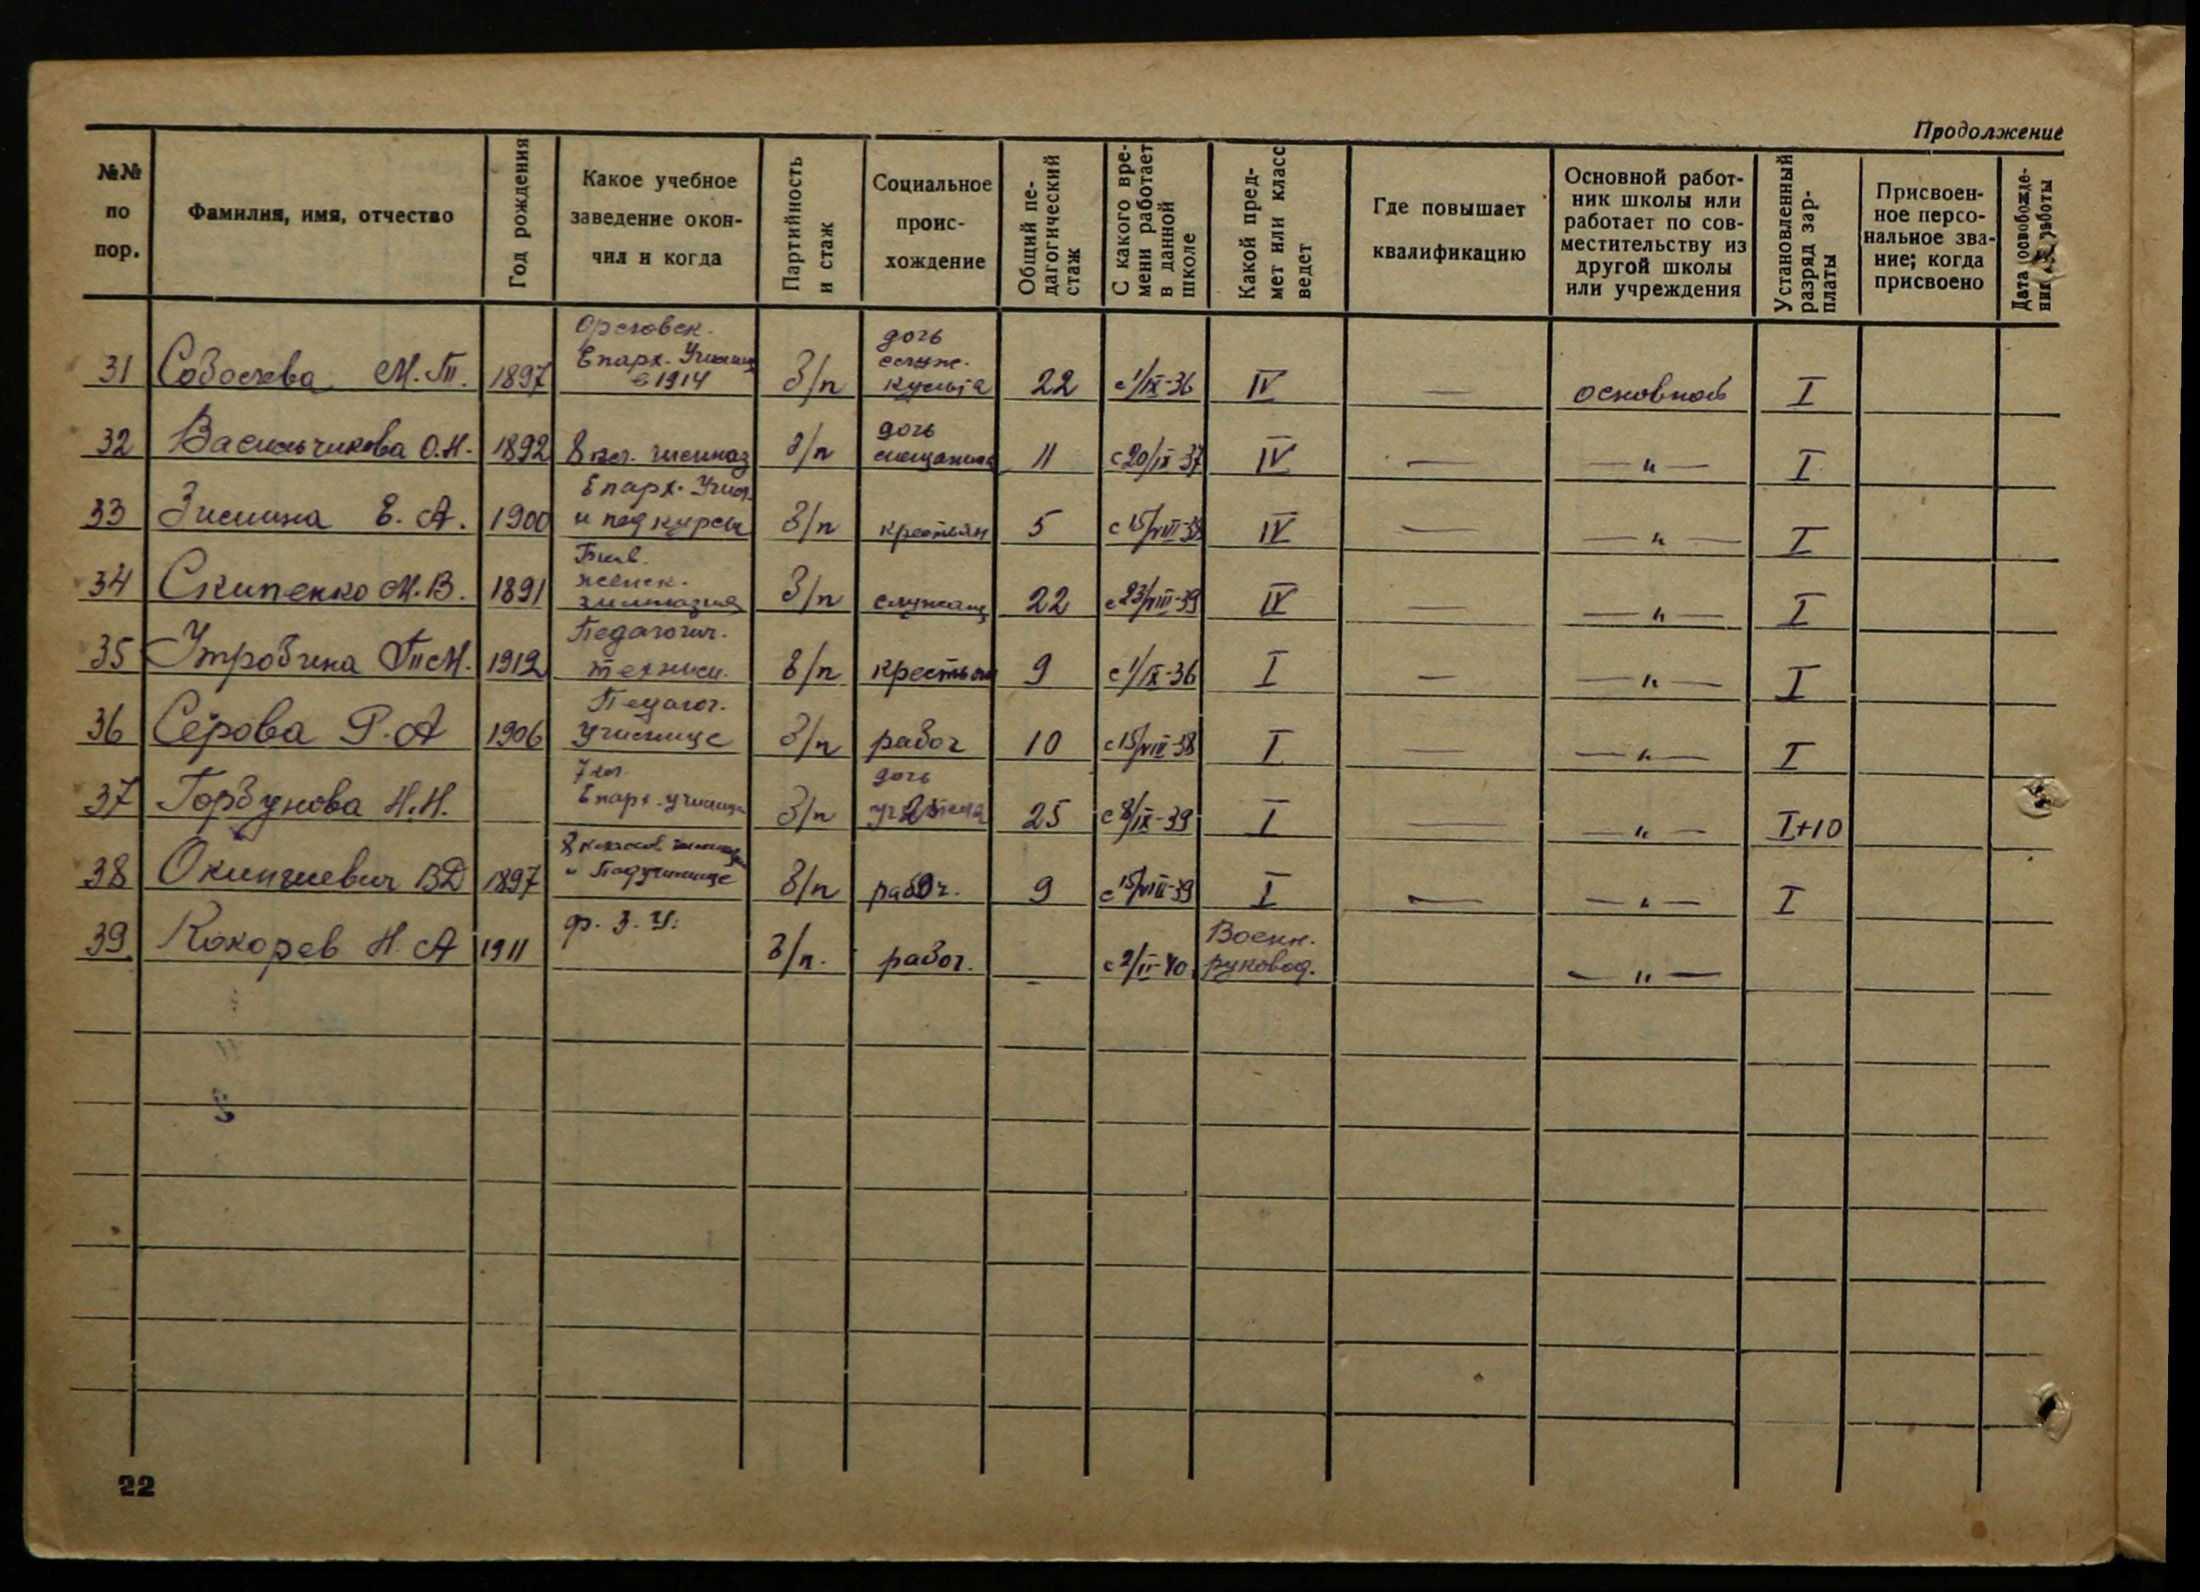 Продолжение
№№ по пор.
Фамилия, имя, отчество
Год рождения
Какое учебное заведение окон-чил и когда
Партийность и стаж
Социальное проис-хождение
Общий пе-дагогический стаж
С какого вре-мени работает в данной школе
Какой пред-мет или класс ведет
Где повышает квалификацию
Основной работ-ник школы или работает по сов-местительству из другой школы или учреждения
Установленный разряд зар-платы
Присвоен-ное персо-нальное зва-ние; когда присвоено
Дата освобожде-ния работы
31 М.П. 1897 Епарх. Училищ в 1914 б/п дочь служ. культа 22 с 1/IX-36 IV — основной I
32 Васильчикова О.Н. 1892 8 кл. гимназ б/п дочь мещанина 11 с 20/IX-37 IV — — " — I
33 Зимина Е. А. 1900 Епарх. Учил. и пед курсы б/п крестьян 5 IV — — " — I
34 Скипенко М.В. 1891 женск. гимназия б/п служащ 22 с 23/VIII-39 IV — — " — I
35 Утробина П.М. 1912 Педагогич. техникум. б/п крестьян 9 с 1/IX-36 I — — " — I
36 Серова Р.А 1906 Педагог. училище б/п рабоч 10 с 15/VIII-38 I — — " — I
37 Горбунова Н.Н. 7 кл. Епарх. училища б/п дочь учителя 25 с 8/IX-39 I — — " — I+10
38 ВД 1897 8 классов гимназии и Педучилище б/п рабоч. 9 с 15/VIII-39 I — — " — I
39. Кокорев Н. А 1911 ф. З. У. б/п. рабоч. — с 2/II-40 Военн. руковод. — " —
22